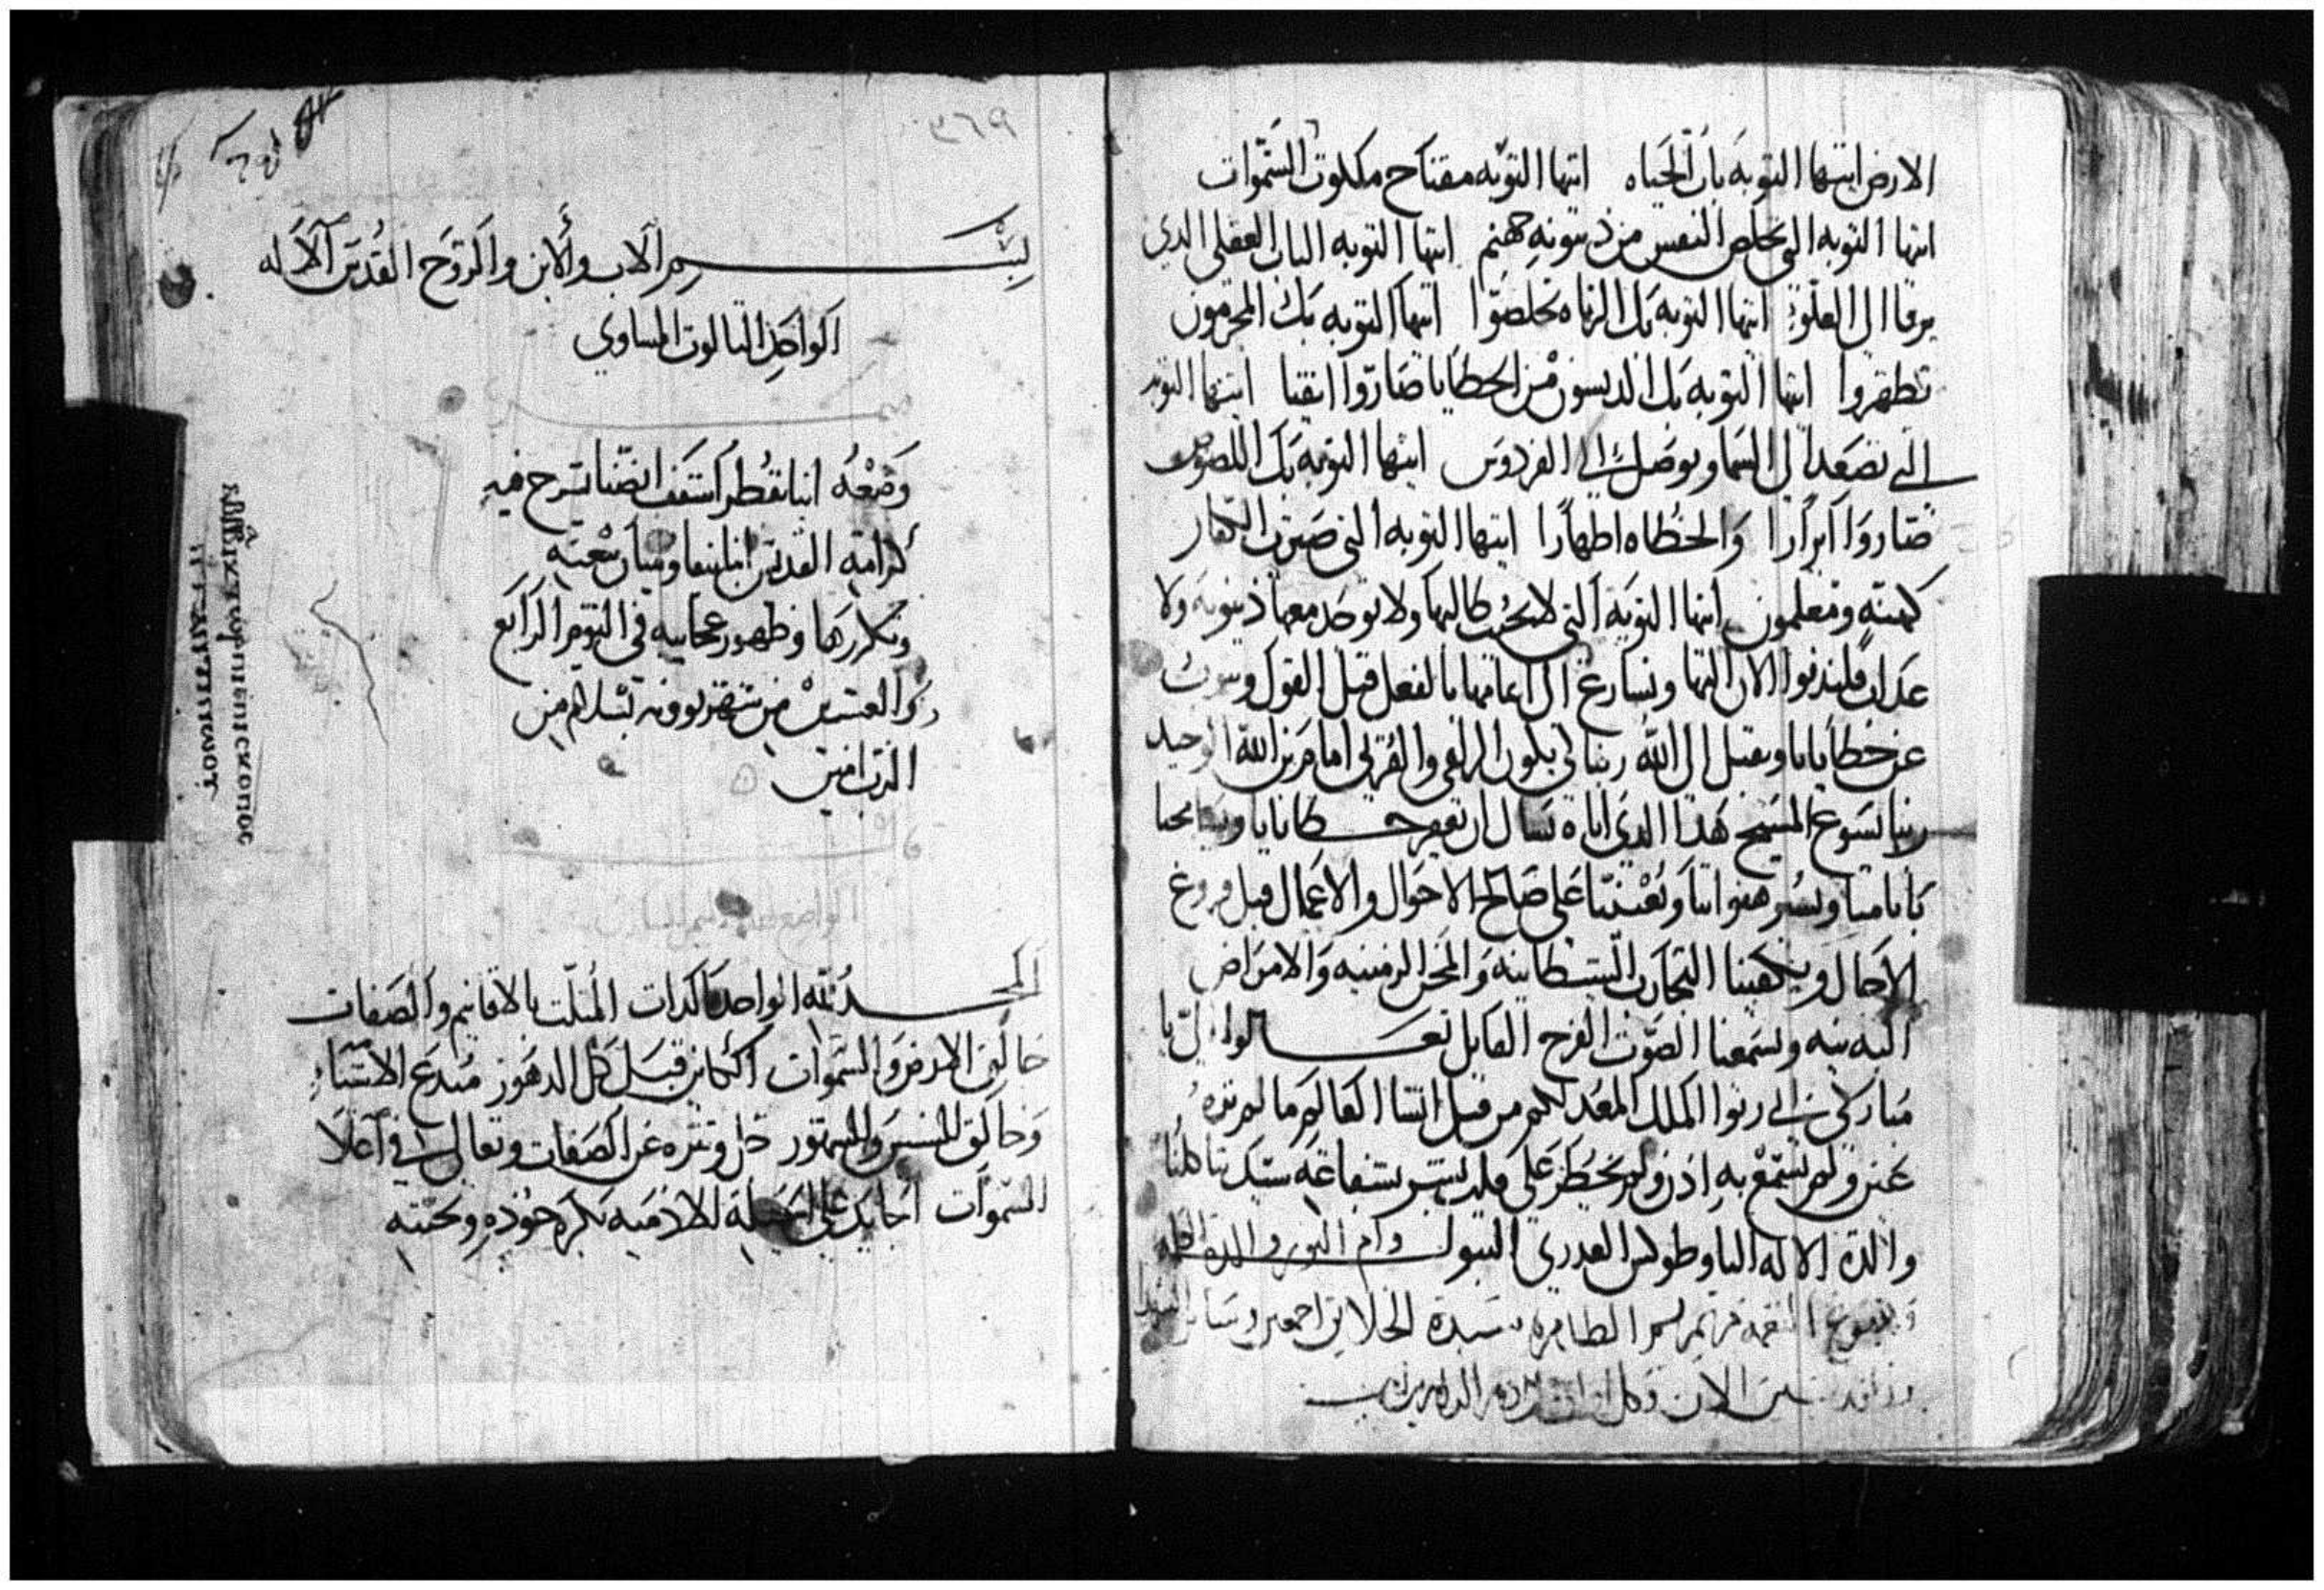 الارض ايتها التوبه باب الحياه ايتها التوبه مفتاح ملكوت السموات
ايتها التوبه التي تخلص النفس من دينونه جهنم ايتها التوبه الباب العقلي الدي
يرقا الي العلو ايتها التوبه بك الزناه تخلصوا ايتها التوبه بك المجرمون
تطهروا ايتها التوبه بك الدنسون من الخطايا صاروا انقيا ايتها التوبه
التي تصعد الي السما وتوصل الي الفردوس ايتها التوبه بك اللصوص
صاروا ابرارا والخطاه اطهارا ايتها التوبه التي صيرت الكفار
كهنه ومعلمون ايتها التوبه التي لا يخيب طالبها ولا يوجد معها دينونه ولا
عداب فلندنوا الان اليها ونسارع الي اعمالها بالفعل قبل القول ونتوب
عن خطايانا ونقبل الي الله ربنا لي يكون الزلفي والقربي امام ابن الله الوحيد
ربنا يسوع المسيح هدا الدي اياه نسال ان يغفر خطايانا ويسامحنا
باتامنا ويستر هفواتنا ويعيننا علي صالح الاحوال والاعمال قبل فروغ
الاجال ويكفينا التجارب الشيطانيه والمحن الزمنيه والامراض
البدنيه ويسمعنا الصوت الفرح القايل تعالوا الي يا
مباركي ابي رثوا الملك المعد لكم من قبل انشا العالم ما لم تره
عين ولم تسمع به ادن ولم يخطر علي قلب بشر بشفاعه ستنا كلنا
والدة الاله التاوطوكس العدري البتول وام النور والدة الاله
وينبوع النعمه مرتمريم الطاهره سيدة الخلايق اجمعين وساير الشهدا
والقديسين الان وكل اوان والي دهر الداهرين امين
٣٦٩
بسم الاب والابن والروح القدس الاله
الواحد التالوت المساوي
وضعه انبا بقطر اسقف انصنا يشرح فيه
كرامة القديس
وتكريزها وظهور عجايبه في اليوم الرابع
والعشرين من شهر بوونه بسلام من
الرب امين
الحمد لله الواحد بالدات المتلت بالاقانيم والصفات
خالق الارض والسموات الكاين قبل كل الدهور مبدع الاشياء
وخالق الشمس والبدور جل وتنزه عن الصفات وتعالي في اعلا
السموات الجايد علي الجبلة الادميه بكرم جوده ومحبته